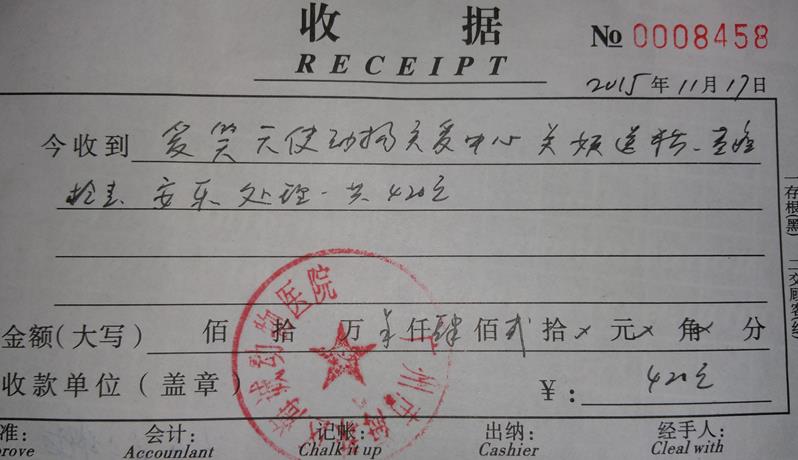 收 据
RECEIPT
№ 0008458
2015年11月17日
今收到 爱笑天使动物关爱中心 美
检查 安乐 处理 共 420元
金额（大写） 佰 拾 万 仟肆佰贰拾 元 角 分
收款单位（盖章） ￥：420元
动物医院
广州市海
会计： 记帐： 出纳： 经手人：
Accounlant Chalk it up Cashier Cleal with
准：
prove
一存根(黑) 二交顾客(红)